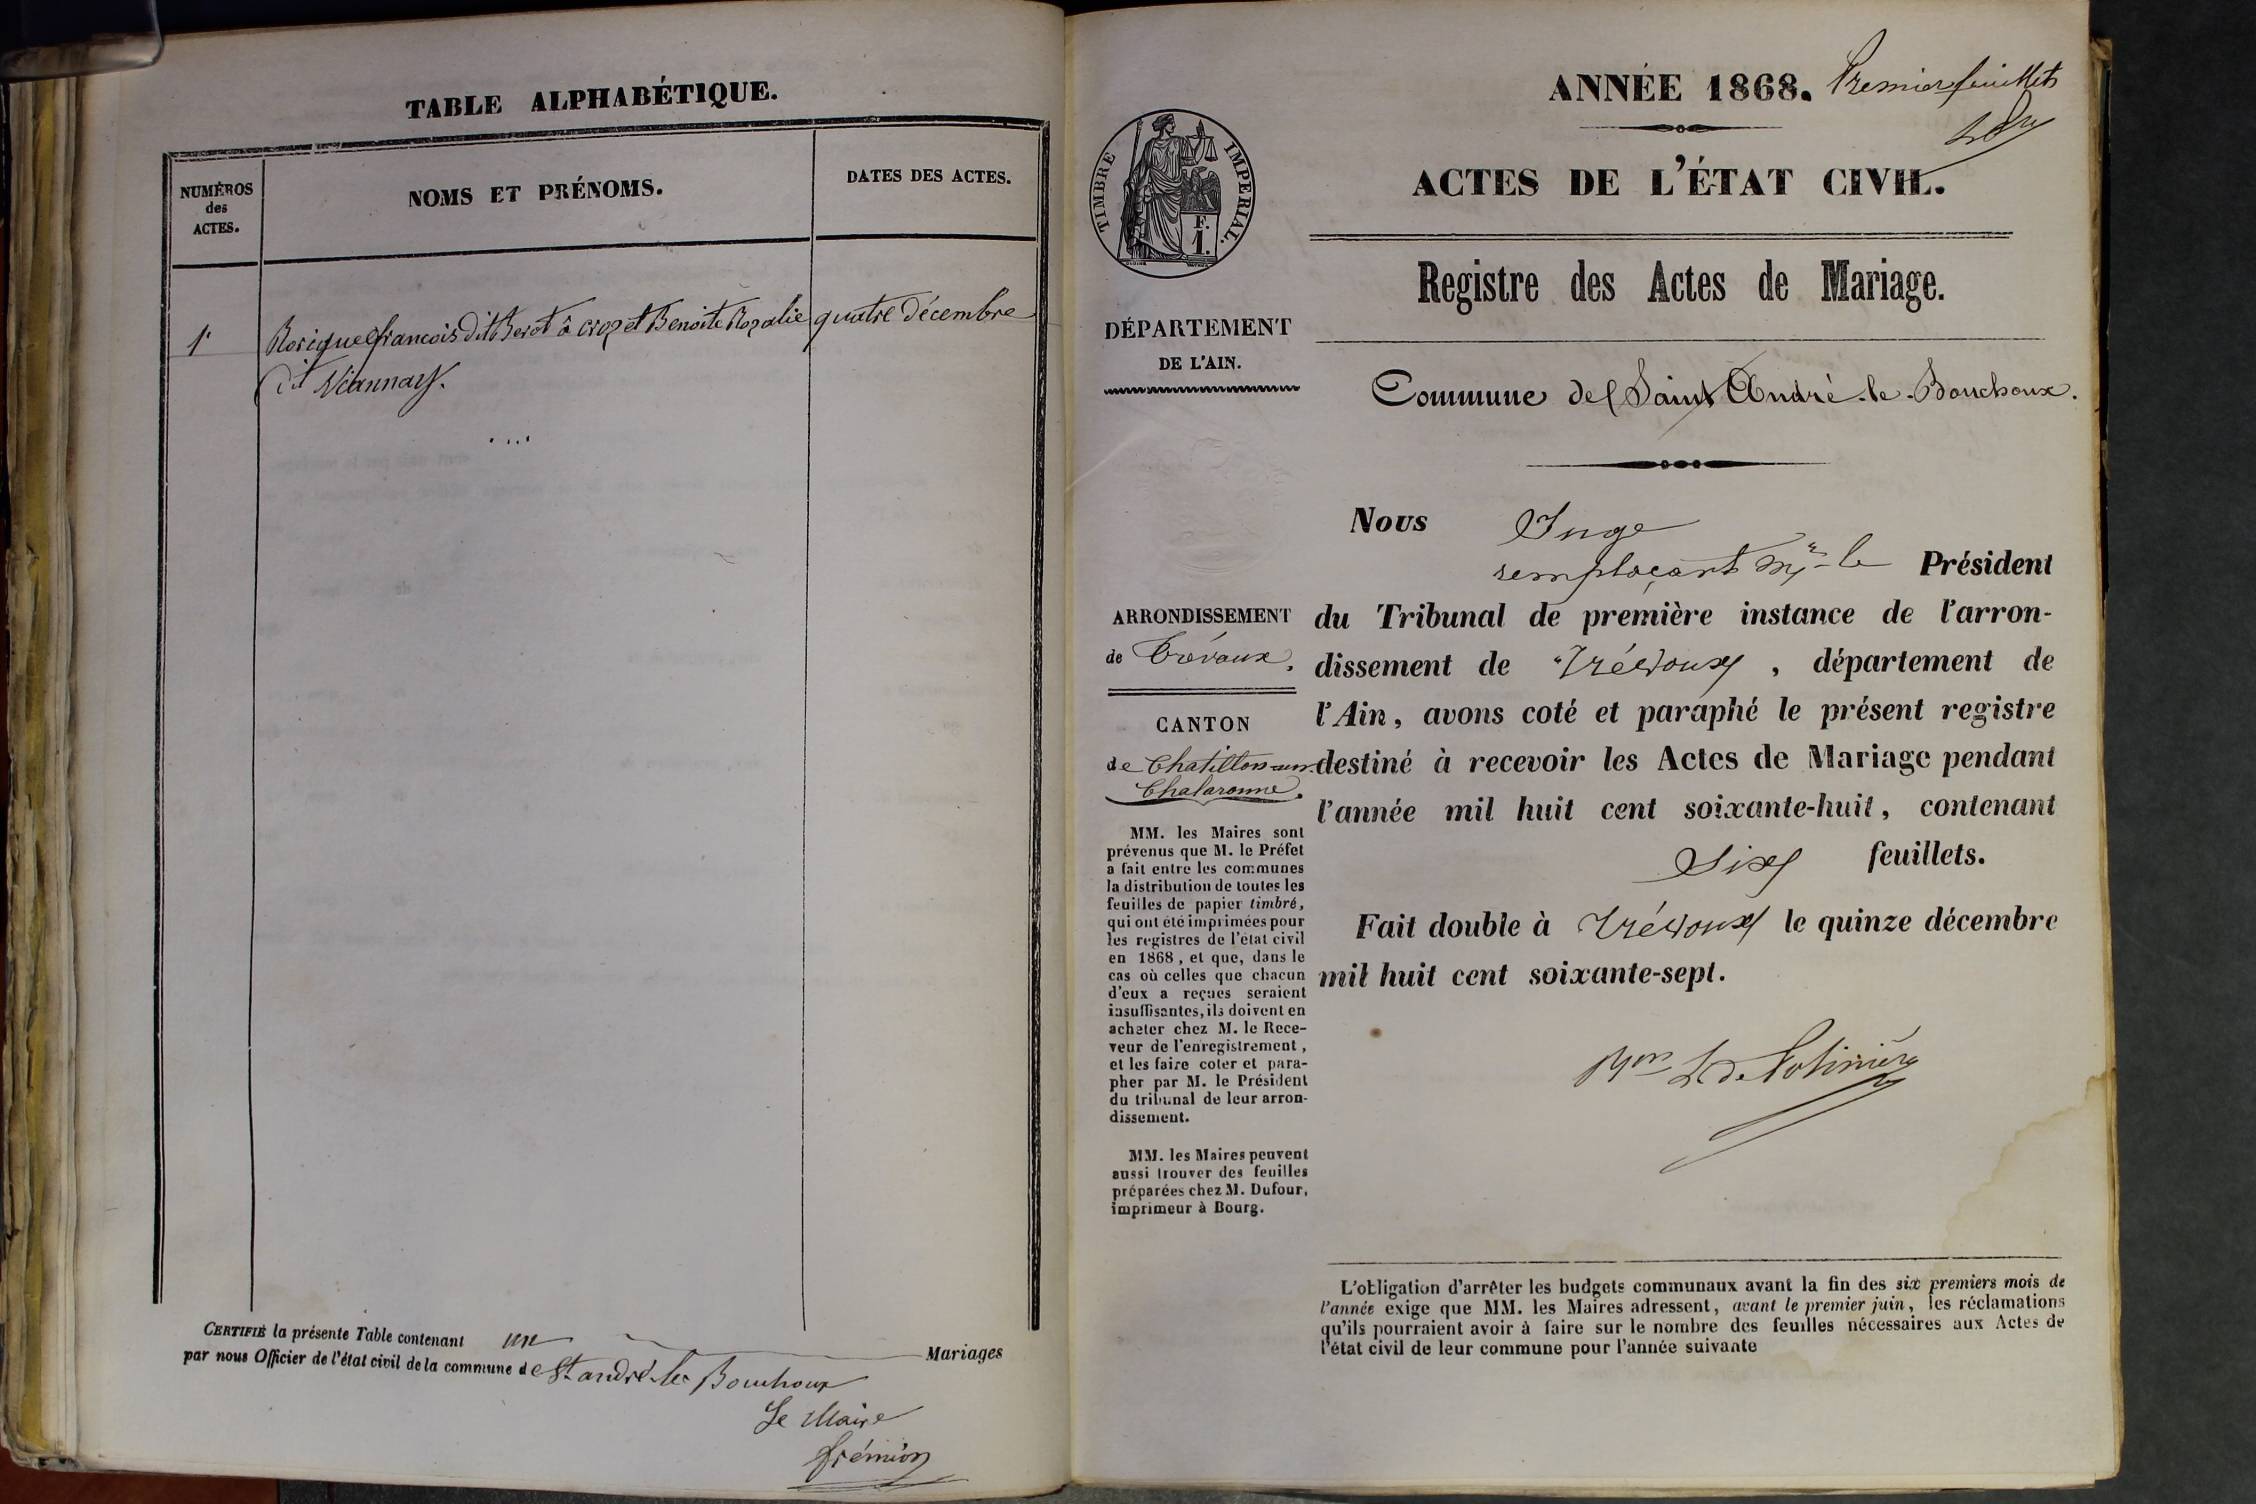 TABLE ALPHABÉTIQUE.
NUMÉROS
des
ACTES.
NOMS ET PRÉNOMS.
DATES DES ACTES.
1
francois dit Berot à croz et Benoite Rozalie
quatre décembre
dit Viannay.
CERTIFIÉ la présente Table contenant un Mariages
par nous Officier de l'état civil de la commune de St andré le Bouchoux
Le Maire
frémion
ANNÉE 1868.
Premier feuillet
ACTES DE L'ÉTAT CIVIL.
TIMBRE IMPERIAL.
F.
1.
Registre des Actes de Mariage.
DÉPARTEMENT
DE L'AIN.
Commune de Saint André-le-Bouchoux.
Nous Juge
remplaçant Mr le Président
du Tribunal de première instance de l'arron-
dissement de Trévoux, département de
l'Ain, avons coté et paraphé le présent registre
destiné à recevoir les Actes de Mariage pendant
l'année mil huit cent soixante-huit, contenant
Six feuillets.
Fait double à Trévoux le quinze décembre
mil huit cent soixante-sept.
ARRONDISSEMENT
de Trévoux.
CANTON
de Chatillon-sur-
Chalaronne.
MM. les Maires sont
prévenus que M. le Préfet
a fait entre les communes
la distribution de toutes les
feuilles de papier timbré,
qui ont été imprimées pour
les registres de l'état civil
en 1868, et que, dans le
cas où celles que chacun
d'eux a reçues seraient
insuffisantes, ils doivent en
acheter chez M. le Rece-
veur de l'enregistrement,
et les faire coter et para-
pher par M. le Président
du tribunal de leur arron-
dissement.
MM. les Maires peuvent
aussi trouver des feuilles
préparées chez M. Dufour,
imprimeur à Bourg.
L'obligation d'arrêter les budgets communaux avant la fin des six premiers mois de
l'année exige que MM. les Maires adressent, avant le premier juin, les réclamations
qu'ils pourraient avoir à faire sur le nombre des feuilles nécessaires aux Actes de
l'état civil de leur commune pour l'année suivante